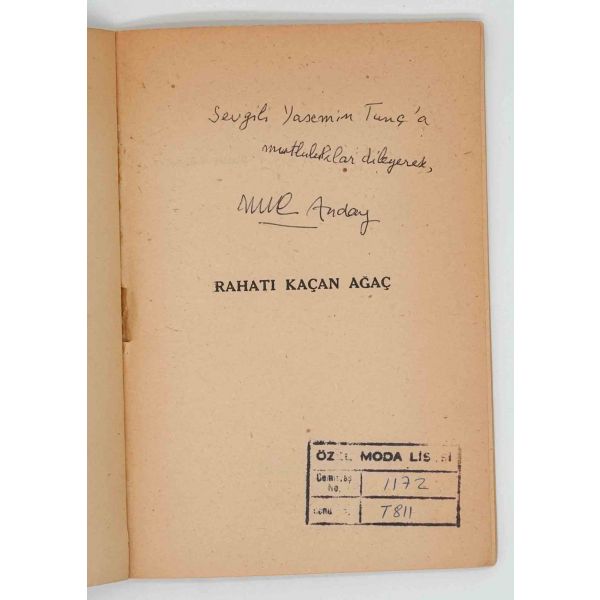 Sevgili Yasemin Tunç'a
mutluluklar dileyerek,
Anday
RAHATI KAÇAN AĞAÇ
ÖZEL MODA LİSESİ
Demirbaş No. 1172
T811